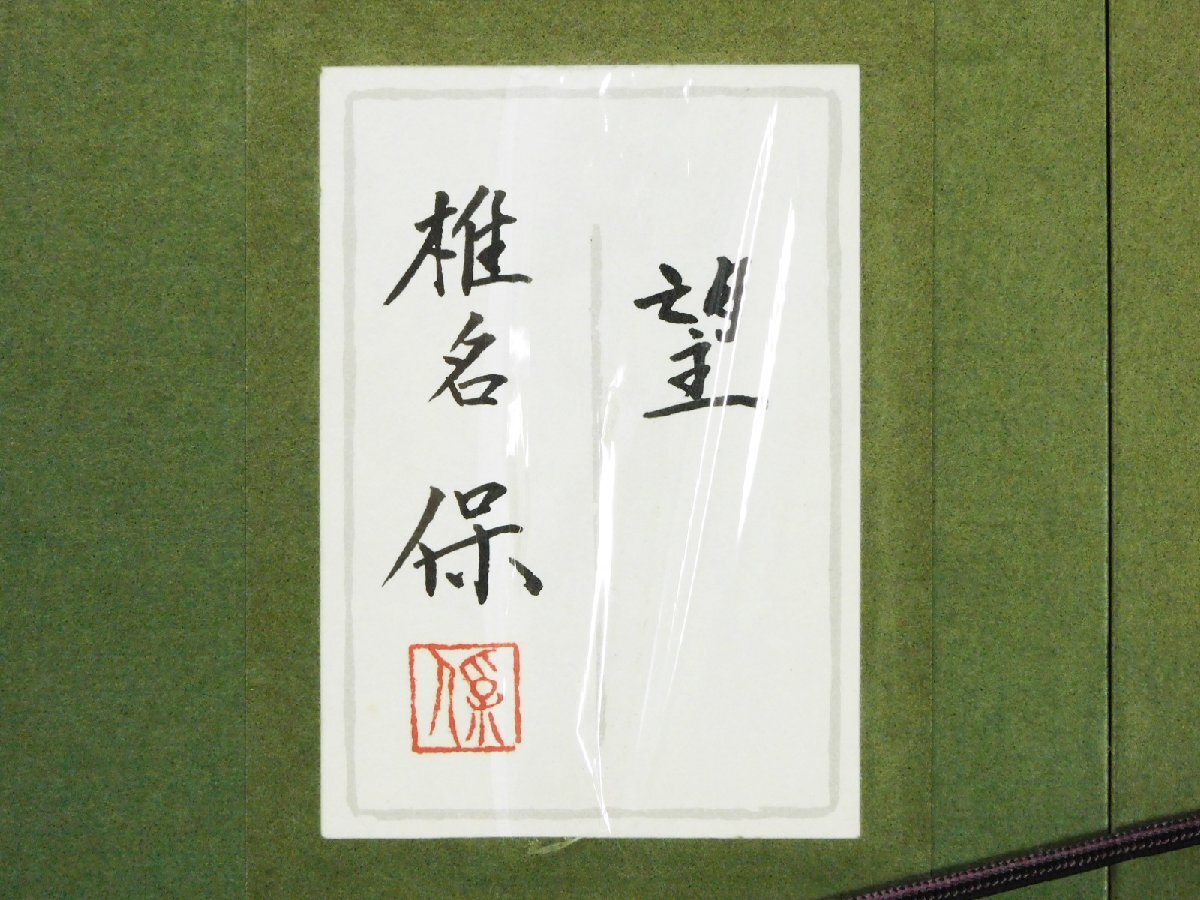 望
椎名保
保